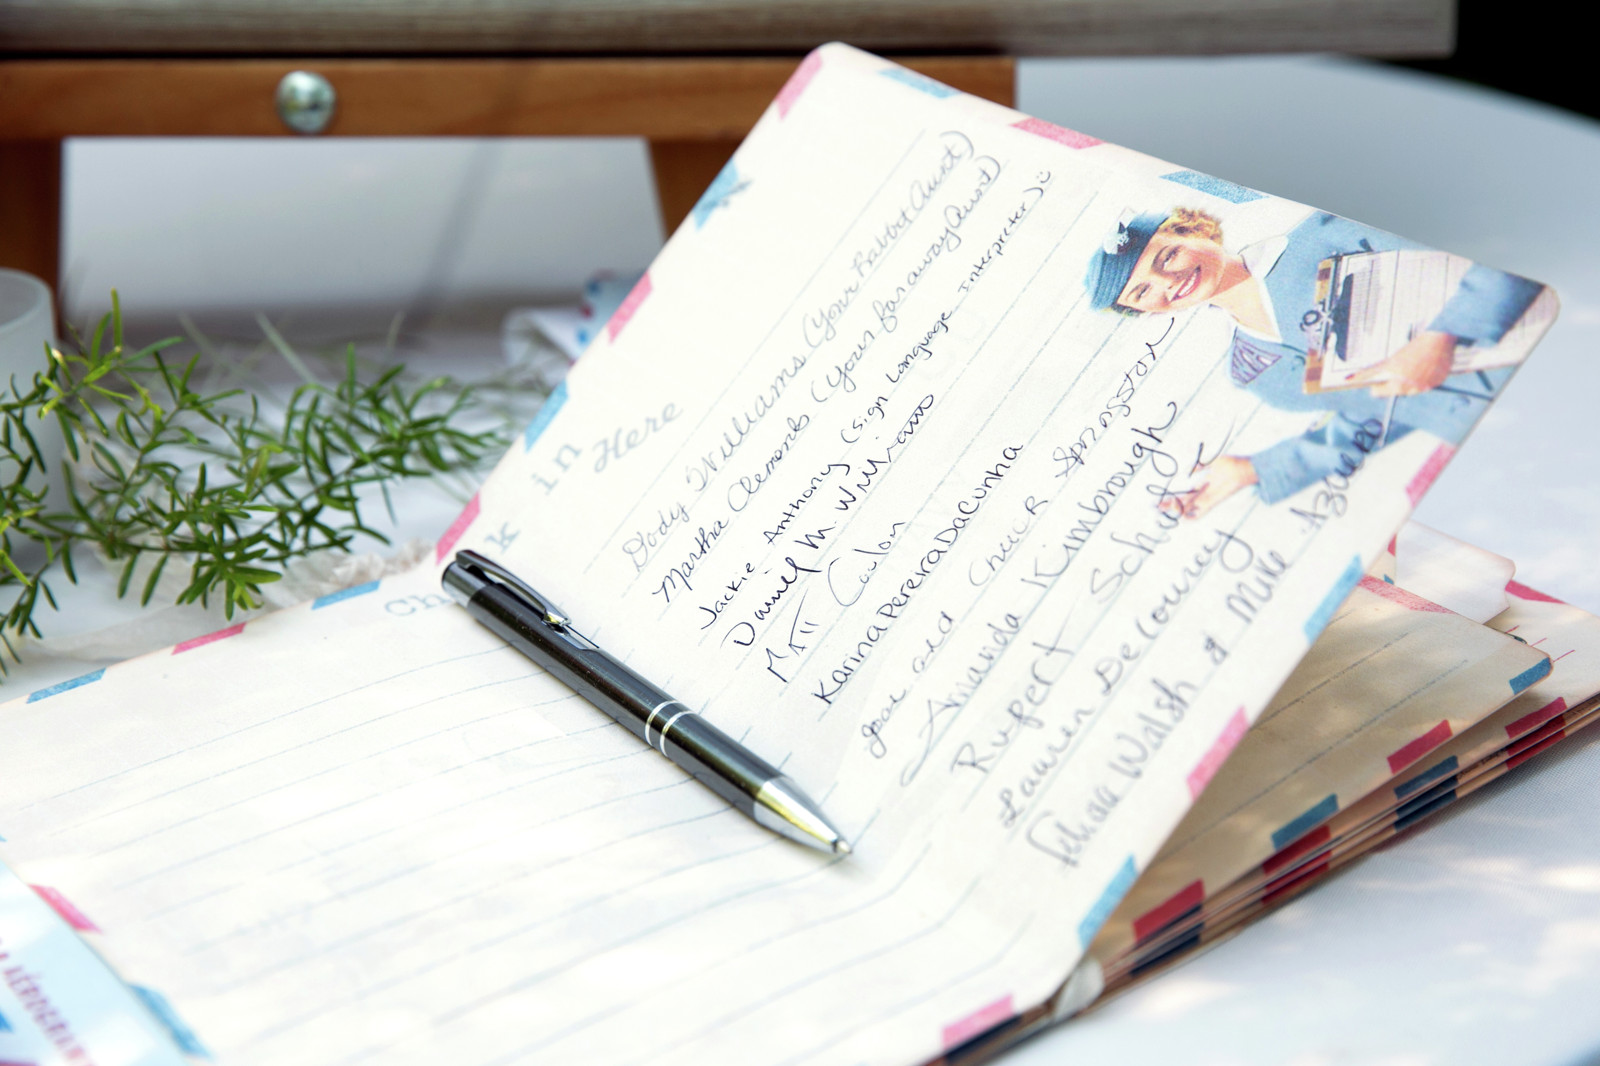 Ch k in Here
Dody Williams (your Rabbit Aunt)
Martha Clements (your far away Aunt)
Jackie Anthony (sign Language Interpreter) ü
Daniel M Williams
Matt
Karina Pereira DaCunha
and Chuck Springston
Amanda Kimbrough
Rupert
Lauren DeCourcy
Felicia Walsh & Mike Azzaro